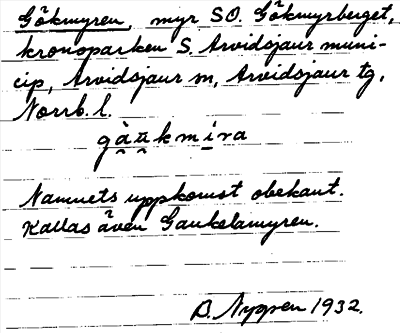 Gökmyren, myr SO. Gökmyrberget,
kronoparken S. Arvidsjaur muni-
cip, Arvidsjaur sn, Arvidsjaur tg,
Norrb. l.
gàu̯kmi̱ra
Namnets uppkomst obekant.
Kallas även Gaukelamyren.
B. Nygren 1932.